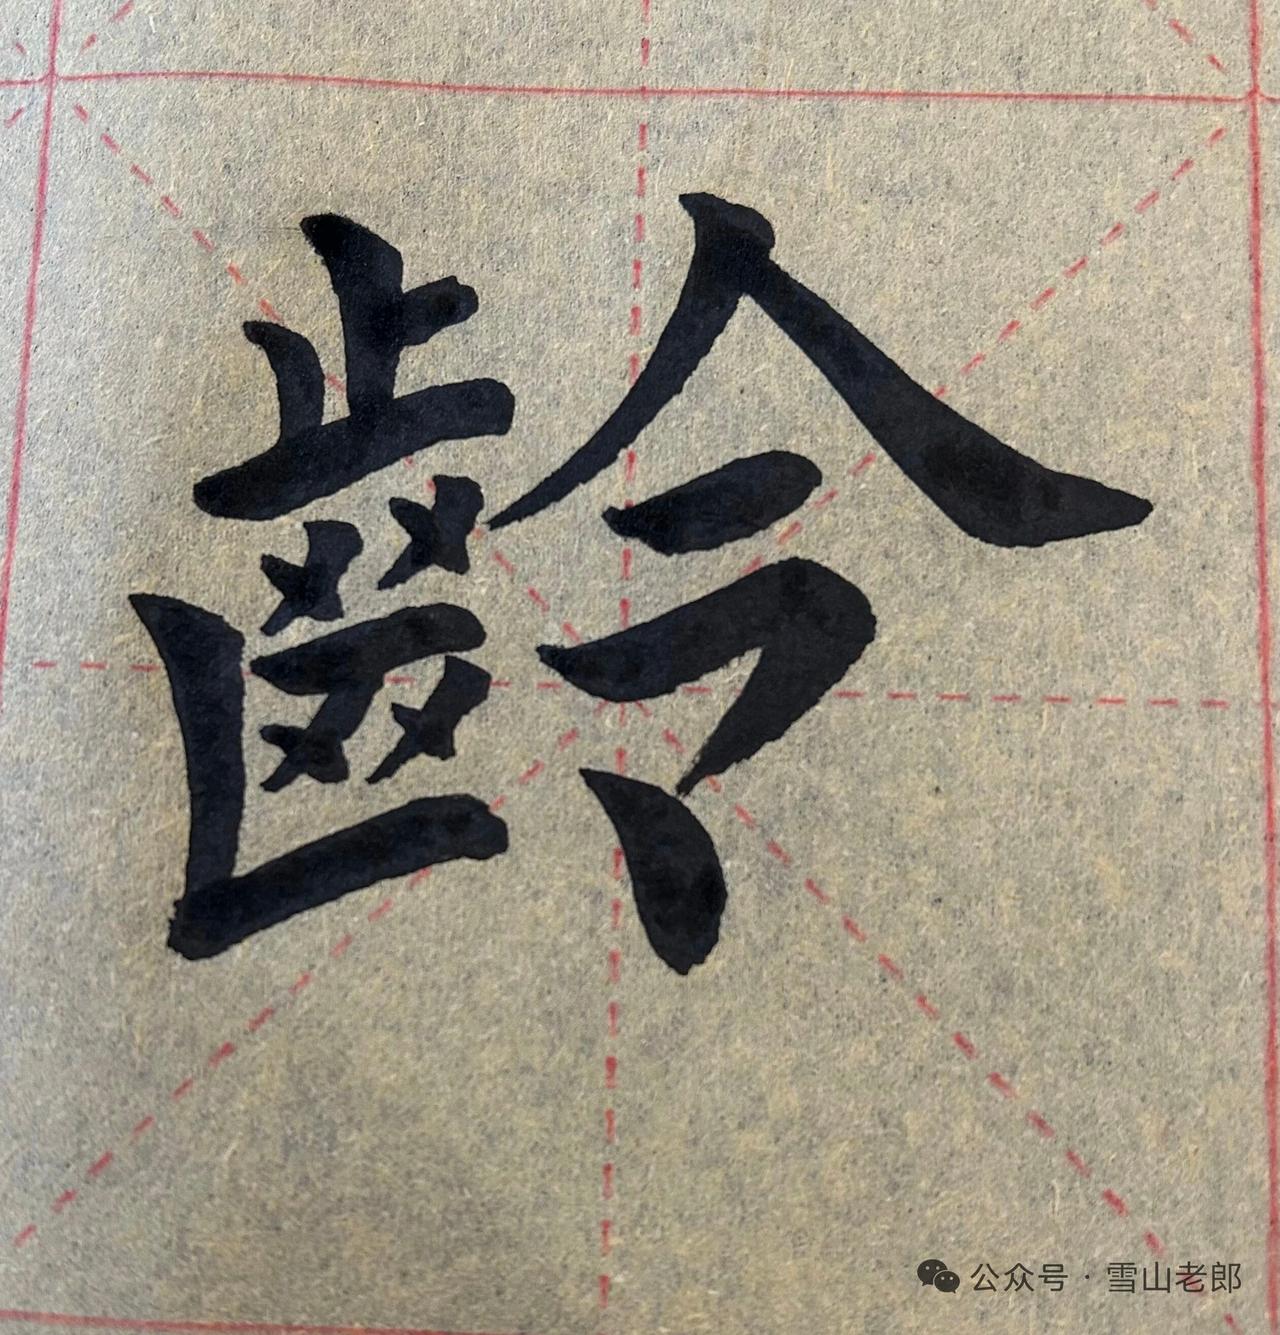 齡
公众号 · 雪山老郎